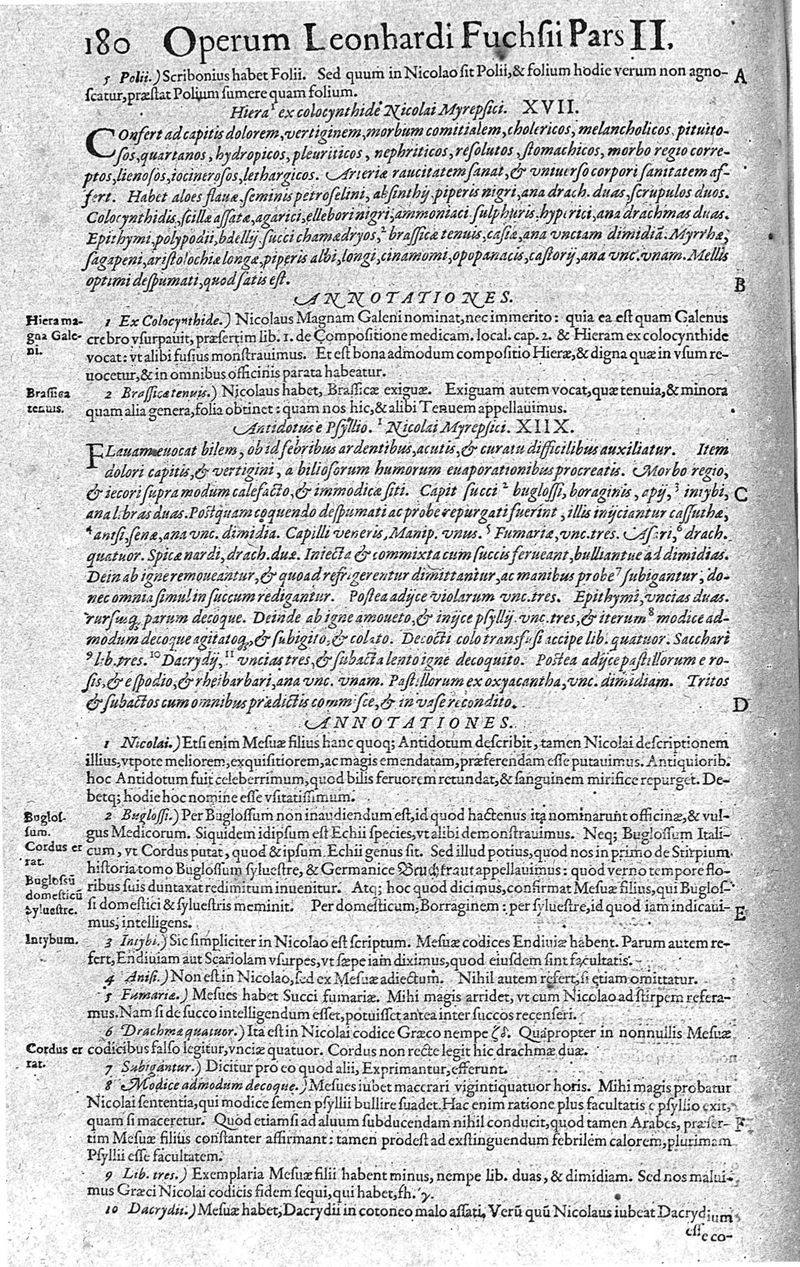 180 Operum Leonhardi Fuchsii Pars II.
5 Polii.) Scribonius habet Folii. Sed quum in Nicolao sit Polii, & folium hodie verum non agno- A
scatur, præstat Polium sumere quam folium.
Hiera¹ ex colocynthide Nicolai Myrepsici. XVII.
COnfert ad capitis dolorem, vertiginem, morbum comitialem, cholericos, melancholicos, pituito-
sos, quartanos, hydropicos, pleuriticos, nephriticos, resolutos, stomachicos, morbo regio corre-
ptos, lienosos, iocinerosos, lethargicos. Arteriæ raucitatem sanat, & vniuerso corpori sanitatem af-
fert. Habet aloes flauæ, seminis petroselini, absinthij, piperis nigri, ana drach. duas, scrupulos duos.
Colocynthidis, scillæ assatæ, agarici, ellebori nigri, ammoniaci, sulphuris, hyperici, ana drachmas duas.
Epithymi, polypodii, bdellij, succi chamædryos, ² brassicæ tenuis, casiæ, ana vnciam dimidiã. Myrrhæ,
sagapeni, aristolochiæ longæ, piperis albi, longi, cinamomi, opopanacis, castorij, ana vnc. vnam. Mellis
optimi despumati, quod satis est. B
ANNOTATIONES.
Hiera magna Galeni.
1 Ex Colocynthide.) Nicolaus Magnam Galeni nominat, nec immerito: quia ea est quam Galenus
crebro vsurpauit, præsertim lib. 1. de Compositione medicam. local. cap. 2. & Hieram ex colocynthide
vocat: vt alibi fusius monstrauimus. Et est bona admodum compositio Hieræ, & digna quæ in vsum re-
uocetur, & in omnibus officinis parata habeatur.
Brassica tenuis.
2 Brassicæ tenuis.) Nicolaus habet, Brassicæ exiguæ. Exiguam autem vocat, quæ tenuia, & minora
quam alia genera, folia obtinet: quam nos hic, & alibi Tenuem appellauimus.
Antidotus e Psyllio. ¹ Nicolai Myrepsici. XIIX.
FLauam euocat bilem, ob id febribus ardentibus, acutis, & curatu difficilibus auxiliatur. Item
dolori capitis, & vertigini, a biliosorum humorum euaporationibus procreatis. Morbo regio,
& iecori supra modum calefacto, & immodicæ siti. Capit succi ² buglossi, boraginis, apij, ³ intybi, C
ana libras duas. Postquam coquendo despumati ac probe repurgati fuerint, illis inijciantur cassuthæ,
⁴ anisi, senæ, ana vnc. dimidia. Capilli veneris, Manip. vnus. ⁵ Fumariæ, vnc. tres. Asari, ⁶ drach.
quatuor. Spicæ nardi, drach. duæ. Iniecta & commixta cum succis ferueant, bulliantue ad dimidias.
Dein ab igne remoueantur, & quoad refrigerentur dimittantur, ac manibus probe ⁷ subigantur, do-
nec omnia simul in succum redigantur. Postea adijce violarum vnc. tres. Epithymi, vncias duas.
rursusq; parum decoque. Deinde ab igne amoueto, & inijce psyllij vnc. tres, & iterum ⁸ modice ad-
modum decoque agitatoq;, & subigito, & colato. Decocti colo transfusi accipe lib. quatuor. Sacchari
⁹ lib. tres. ¹⁰ Dacrydij, ¹¹ vncias tres, & subacta lento igne decoquito. Postea adijce pastillorum e ro-
sis, & e spodio, & rhei barbari, ana vnc. vnam. Pastillorum ex oxyacantha, vnc. dimidiam. Tritos
& subactos cum omnibus prædictis commisce, & in vase recondito. D
ANNOTATIONES.
1 Nicolai.) Etsi enim Mesuæ filius hanc quoq; Antidotum describit, tamen Nicolai descriptionem
illius, vtpote meliorem, exquisitiorem, ac magis emendatam, præferendam esse putauimus. Antiquiorib.
hoc Antidotum fuit celeberrimum, quod bilis feruorem retundat, & sanguinem mirifice repurget. De-
betq; hodie hoc nomine esse vsitatissimum.
Buglossum.
2 Buglossi.) Per Buglossum non inaudiendum est, id quod hactenus ita nominarunt officinæ, & vul-
gus Medicorum. Siquidem id ipsum est Echii species, vt alibi demonstrauimus. Neq; Buglossum Itali-
Cordus errat.
cum, vt Cordus putat, quod & ipsum Echii genus sit. Sed illud potius, quod nos in primo de Stirpium
historia tomo Buglossum syluestre, & Germanice Bruchkraut appellauimus: quod verno tempore flo-
Buglossũ domesticũ syluestre.
ribus suis duntaxat redimitum inuenitur. Atq; hoc quod dicimus, confirmat Mesuæ filius, qui Buglos-
si domestici & syluestris meminit. Per domesticum, Borraginem: per syluestre, id quod iam indicaui- E
mus, intelligens.
Intybum.
3 Intybi.) Sic simpliciter in Nicolao est scriptum. Mesuæ codices Endiuiæ habent. Parum autem re-
fert, Endiuiam aut Scariolam vsurpes, vt sæpe iam diximus, quod eiusdem sint facultatis.
4 Anisi.) Non est in Nicolao, sed ex Mesuæ adiectum. Nihil autem refert, si etiam omittatur.
5 Fumariæ.) Mesues habet Succi fumariæ. Mihi magis arridet, vt cum Nicolao ad stirpem refera-
mus. Nam si de succo intelligendum esset, potuisset antea inter succos recenseri.
6 Drachmæ quatuor.) Ita est in Nicolai codice Græco nempe Quapropter in nonnullis Mesuæ
Cordus errat.
codicibus falso legitur, vnciæ quatuor. Cordus non recte legit hic drachmæ duæ.
7 Subigantur.) Dicitur pro eo quod alii, Exprimantur, efferunt.
8 Modice admodum decoque.) Mesues iubet macerari vigintiquatuor horis. Mihi magis probatur
Nicolai sententia, qui modice semen psyllii bullire suadet. Hac enim ratione plus facultatis e psyllio exit,
quam si maceretur. Quod etiamsi ad aluum subducendam nihil conducit, quod tamen Arabes, præser- F
tim Mesuæ filius constanter affirmant: tamen prodest ad exstinguendum febrilem calorem, plurimam
Psyllii esse facultatem.
9 Lib. tres.) Exemplaria Mesuæ filii habent minus, nempe lib. duas, & dimidiam. Sed nos malui-
mus Græci Nicolai codicis fidem sequi, qui habet, γ.
10 Dacrydii.) Mesuæ habet, Dacrydii in cotoneo malo assati, Verũ quũ Nicolaus iubeat Dacrydium
esse co-